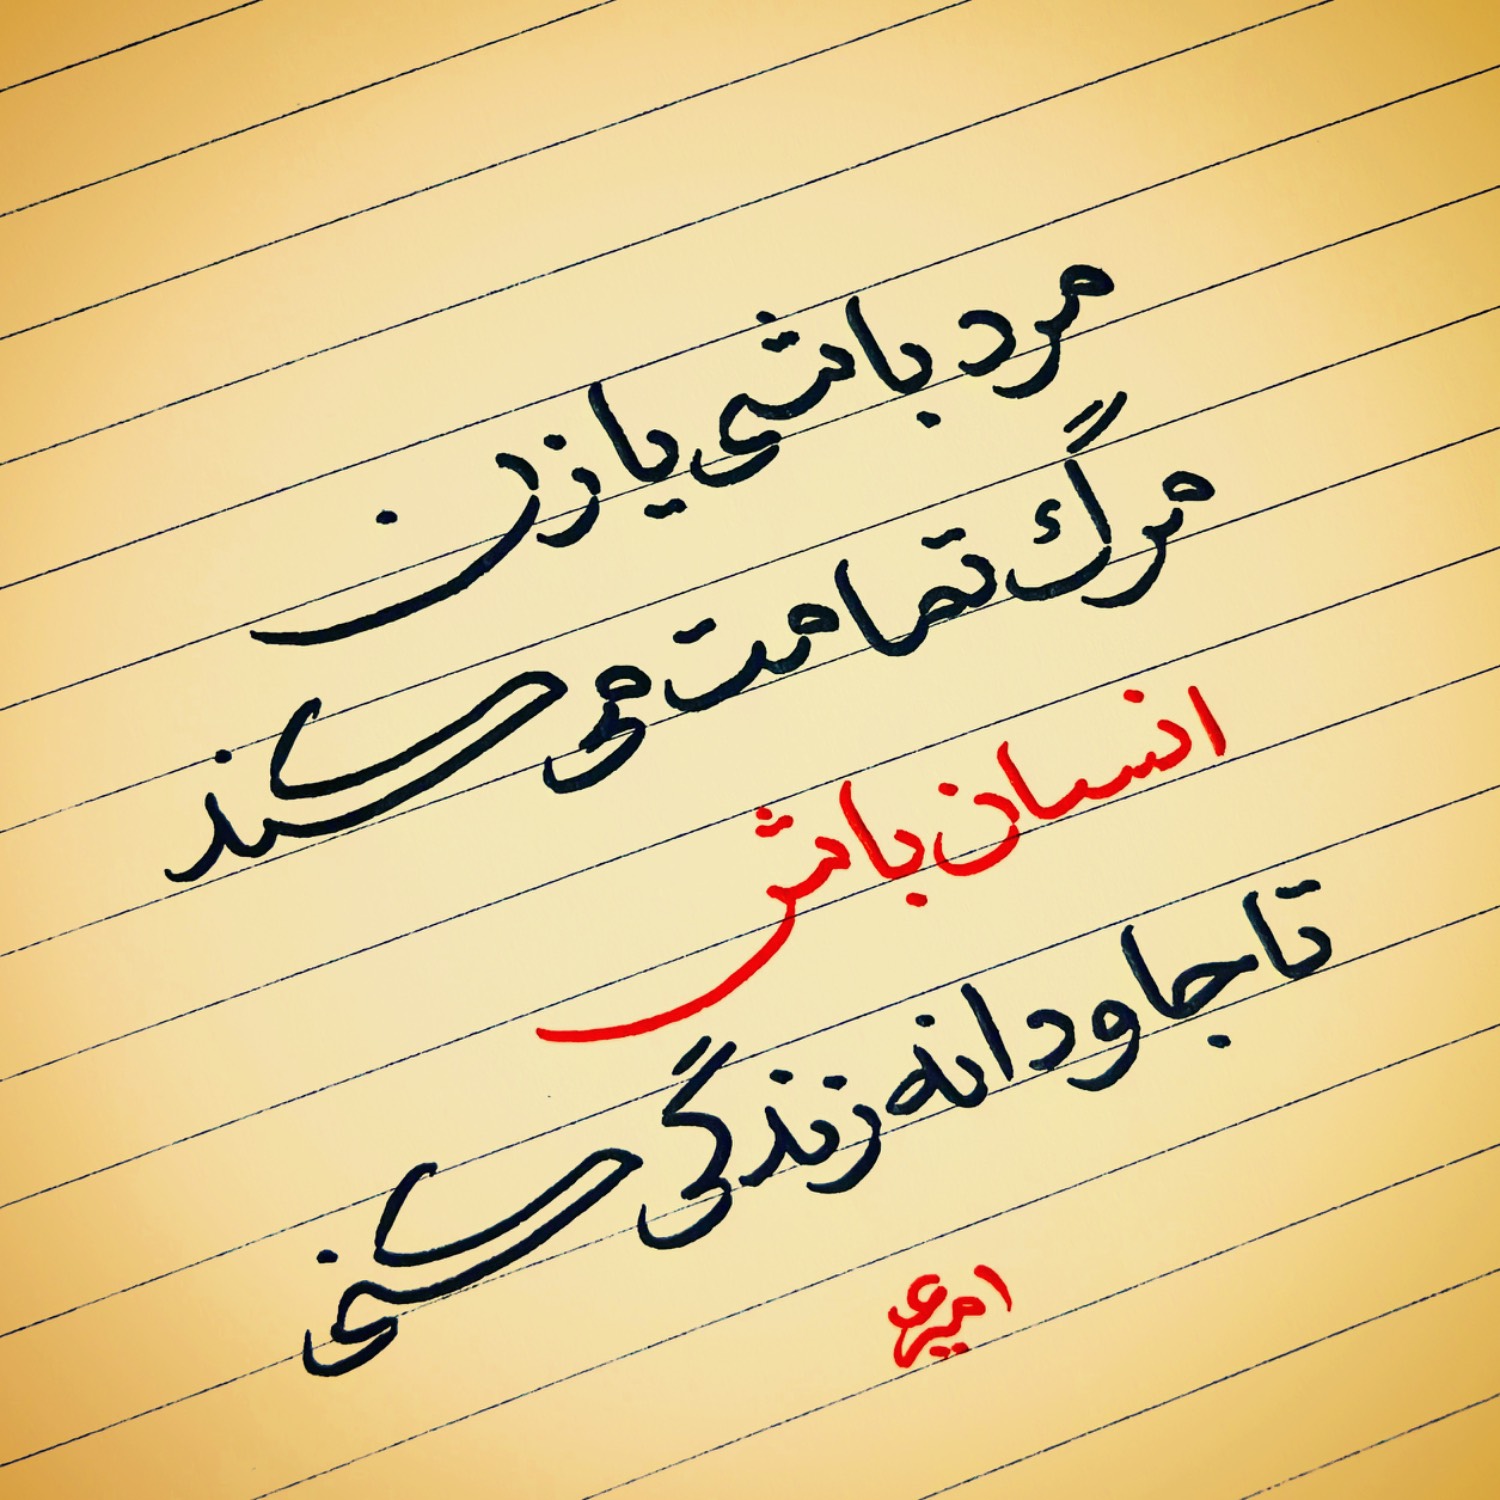 مرد باشی یا زن
مرگ تمامت می کند
انسان باش
تا جاودانه زندگی کنی
امیر